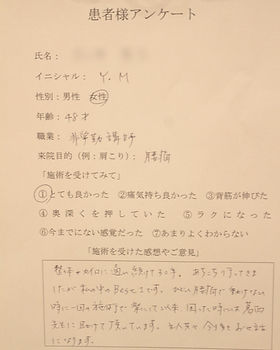 患者様アンケート
氏名：
イニシャル： Y．M
性別：男性 女性
年齢：48才
職業： 非常勤講師
来院目的（例：肩こり）： 腰痛
「施術を受けてみて」
①とても良かった ②痛気持ち良かった ③背筋が伸びた
④奥深くを押していた ⑤ラクになった
⑥今までにない感覚だった ⑦あまりよくわからない
「施術を受けた感想やご意見」
整体やカイロに通い続けて
けど 私の中のBestです。ひどい腰痛で動けない
時に一回の施術で 以来、困った時には葛西
先生に助けて頂いています。主人共々 今後もお世話
になります。